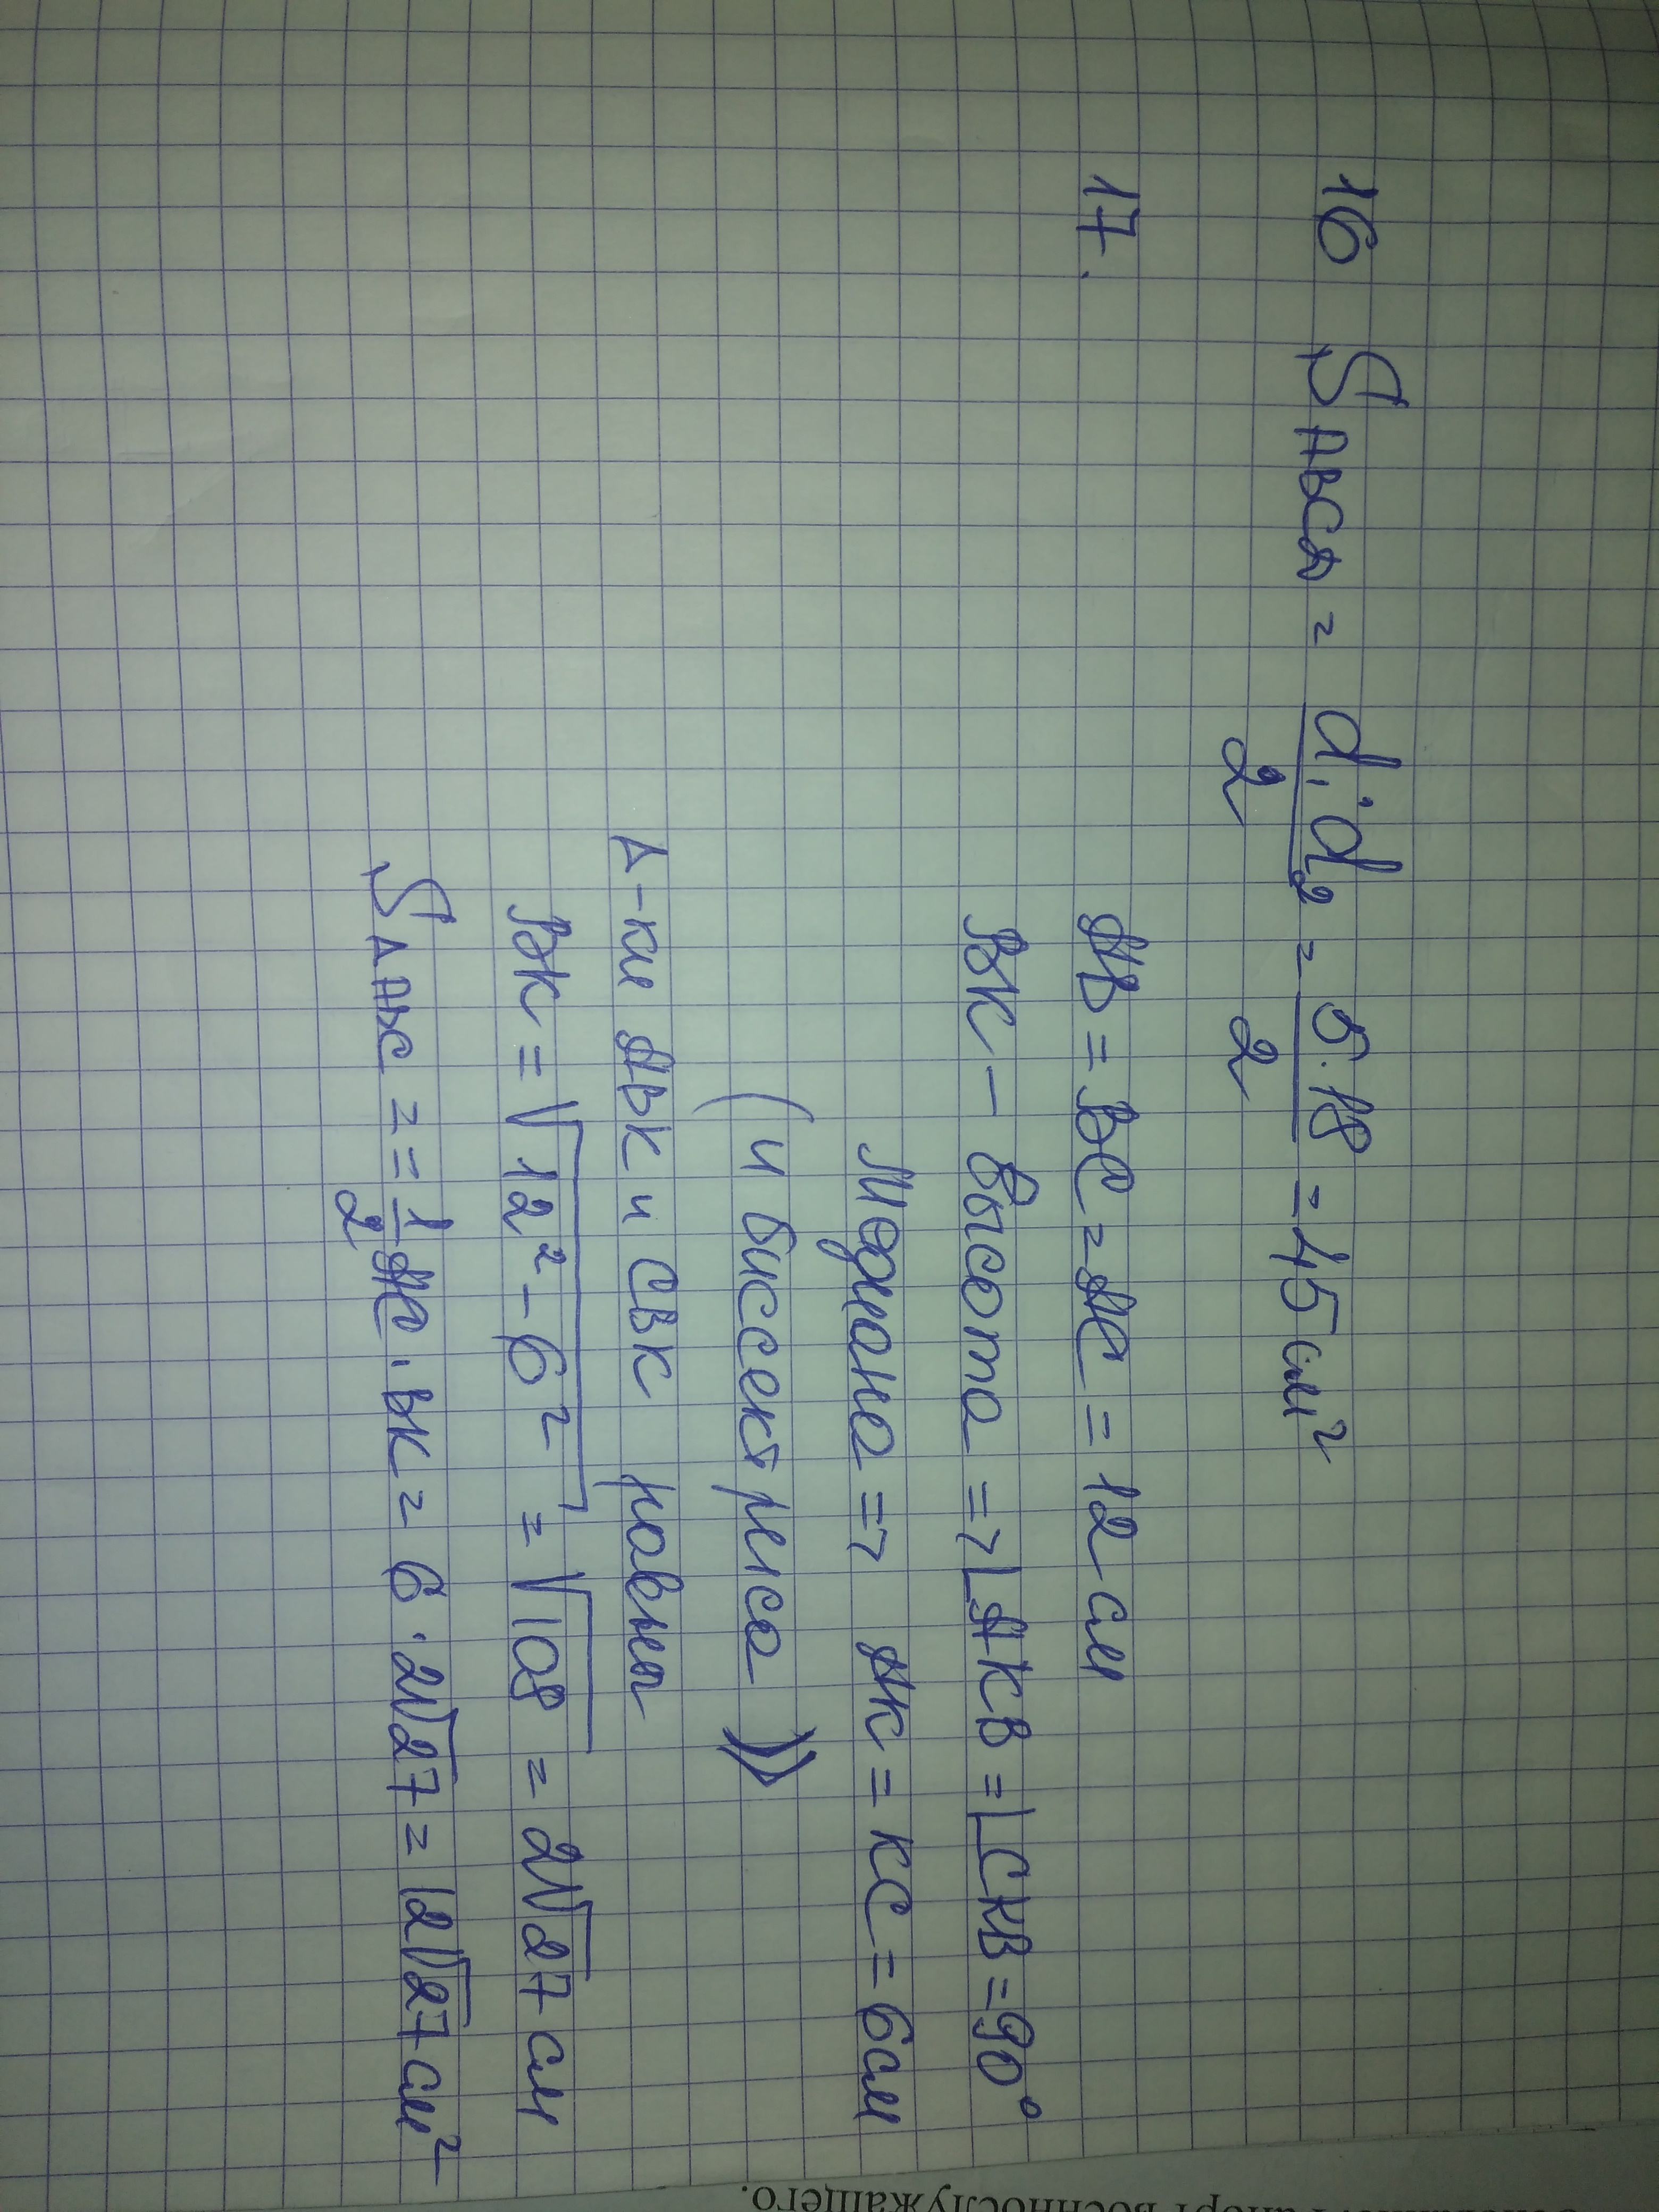 16 S ABCD = d₁·d₂/2 = 5·18/2 = 45 см²
17. AB = BC = AC = 12 см
BK – высота => ∟AKB = ∟CKB = 90°
Медиана => AK = KC = 6 см
(и биссектриса)
Δ-ки ABK и CBK равны
BK = √12² – 6² = √108 = 2√27 см
S ΔABC = = 1/2 AC · BK = 6 · 2√27 = 12√27 см²
военнослужащего.